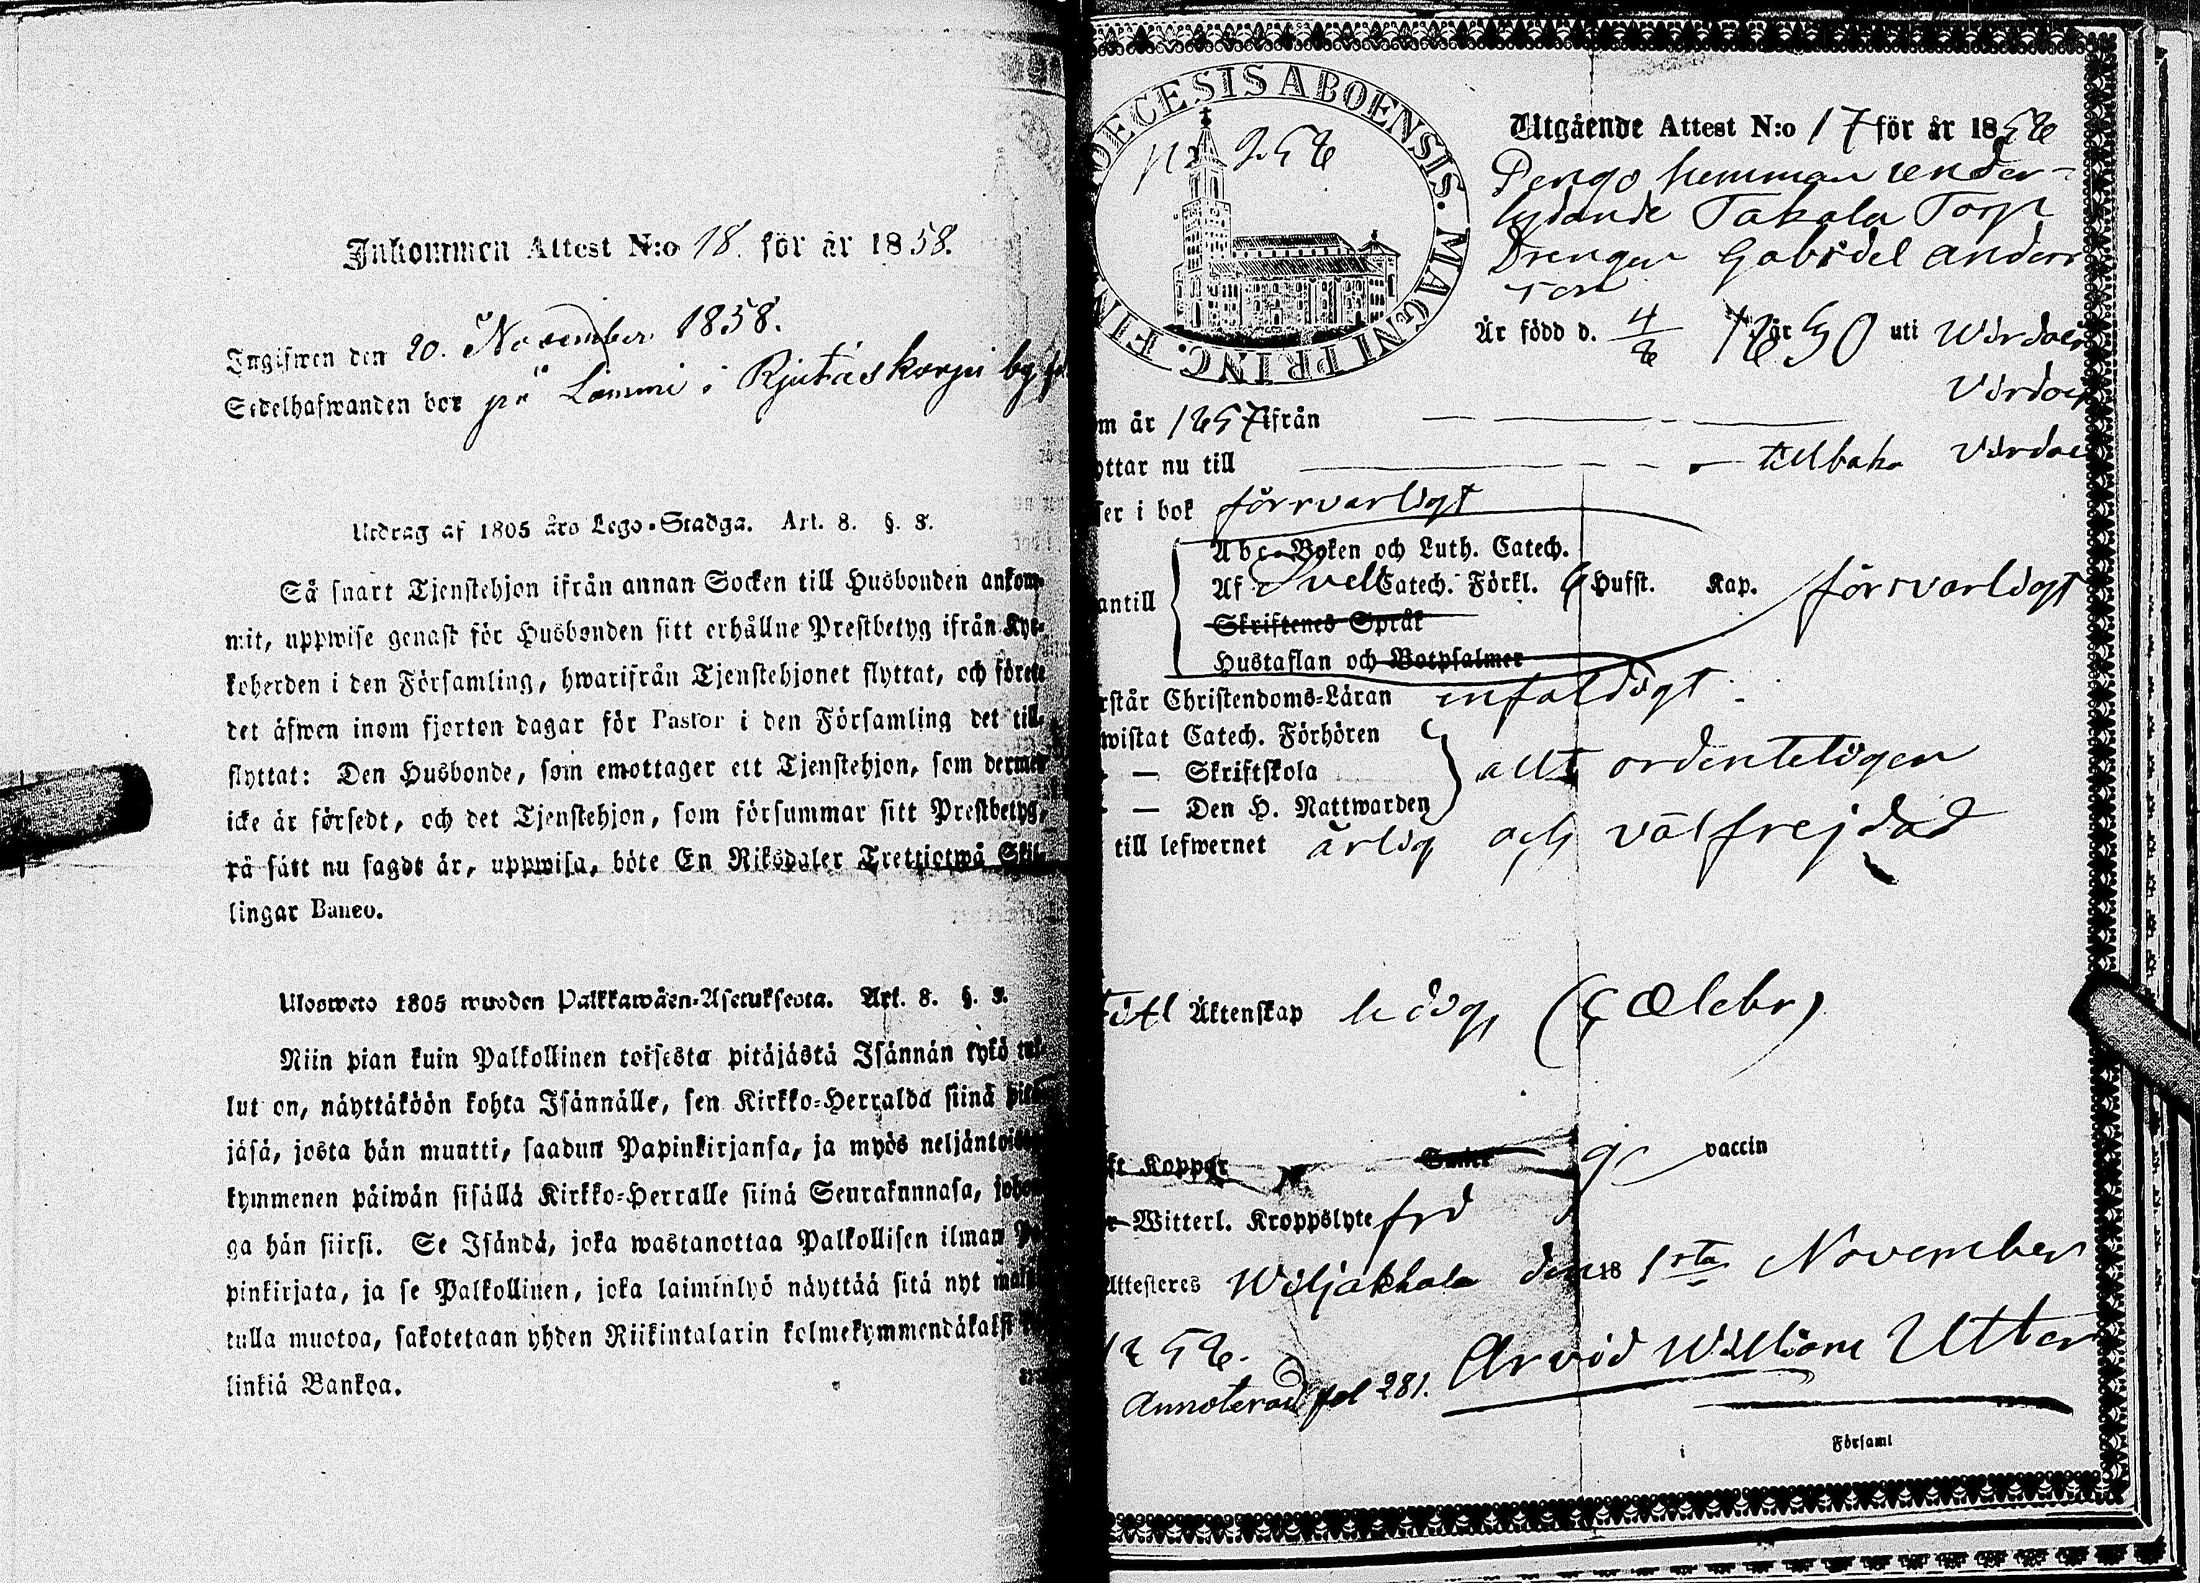 Inkommen Attest N:o 18. för år 1858.
Ingifwen den 20. November 1858.
Sedelhafwanden bor på Lammi i Rjutaskorpi by
Utdrag af 1805 års Lego-Stadga. Art. 8. §. 8.
Så snart Tjenstehjon ifrån annan Socken till Husbonden ankom-
mit, uppwise genast för Husbonden sitt erhållne Prestbetyg ifrån Kyr-
koherden i den Församling, hwarifrån Tjenstehjonet flyttat, och förete
det äfwen inom fjorton dagar för Pastor i den Församling det till-
flyttat: Den Husbonde, som emottager ett Tjenstehjon, som dermed
icke är försedt, och det Tjenstehjon, som försummar sitt Prestbetyg,
på sätt nu sagdt är, uppwisa, böte En Riksdaler Trettiotwå Skil-
lingar Banco.
Ulosweto 1805 wuoden Palkkawäen-Asetuksesta. Art. 8. §. 8.
Niin pian kuin Palkollinen toisesta pitäjästä Isännän tykö tul-
lut on, näyttäköön kohta Isännälle, sen Kirkko-Herralda siinä pitä-
jäsä, josta hän muutti, saadun Papinkirjansa, ja myös neljäntoista
kymmenen päiwän sisällä Kirkko-Herralle siinä Seurakunnasa, johon-
ga hän siirsi. Se Isändä, joka wastanottaa Palkollisen ilman Pa-
pinkirjata, ja se Palkollinen, joka laiminlyö näyttää sitä nyt mainit-
tulla muotoa, sakotetaan yhden Riikintalarin kolmekymmendäkaksi kil-
linkiä Bankoa.
DIOECESIS ABOENSIS. MAGNI PRINC. FIN
p. 258
Utgående Attest N:o 17 för år 1858
Pengo hemman under-
lydande Takala Torp
Drengen Gabriel Anders
son
Är född d. 4/8 1830 uti Virdois
Virdois
om år 1857 ifrån
yttar nu till tillbaka Virdois
ser i bok försvarligt
Abc-Boken och Luth. Catech.
antill Af Svebil. Catech. Förkl. 6 Hufst. Kap. försvarligt
Skriftenes Språk
Hustaflan och Botpsalmer
rstår Christendoms-Läran enfaldigt.
wistat Catech. Förhören
— Skriftskola allt ordenteligen
— Den H. Nattwarden
till lefwernet ärlig och välfrejdad
till Äktenskap ledig (Cœlebs)
ft Koppor vaccin
Witterl. Kroppslyte fri
Attesteres Wiljakkala den 18 1sta November
1858.
Arvid William Utter
Annoterad fol 281.
i Församl